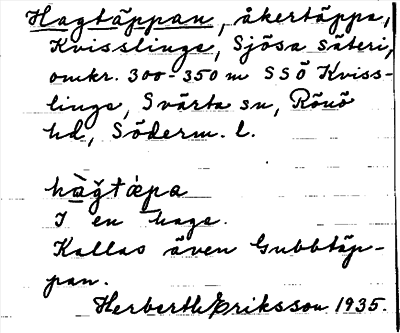 Hagtäppan, åkertäppa,
Kvisslinge, Sjösa säteri,
omkr. 300-350 m SSÖ Kviss-
linge, Svärta sn, Rönö
hd, Söderm. l.
hàgtæ̀pa
I en hage.
Kallas även Gubbtäp-
pan.
Herberth Eriksson 1935.